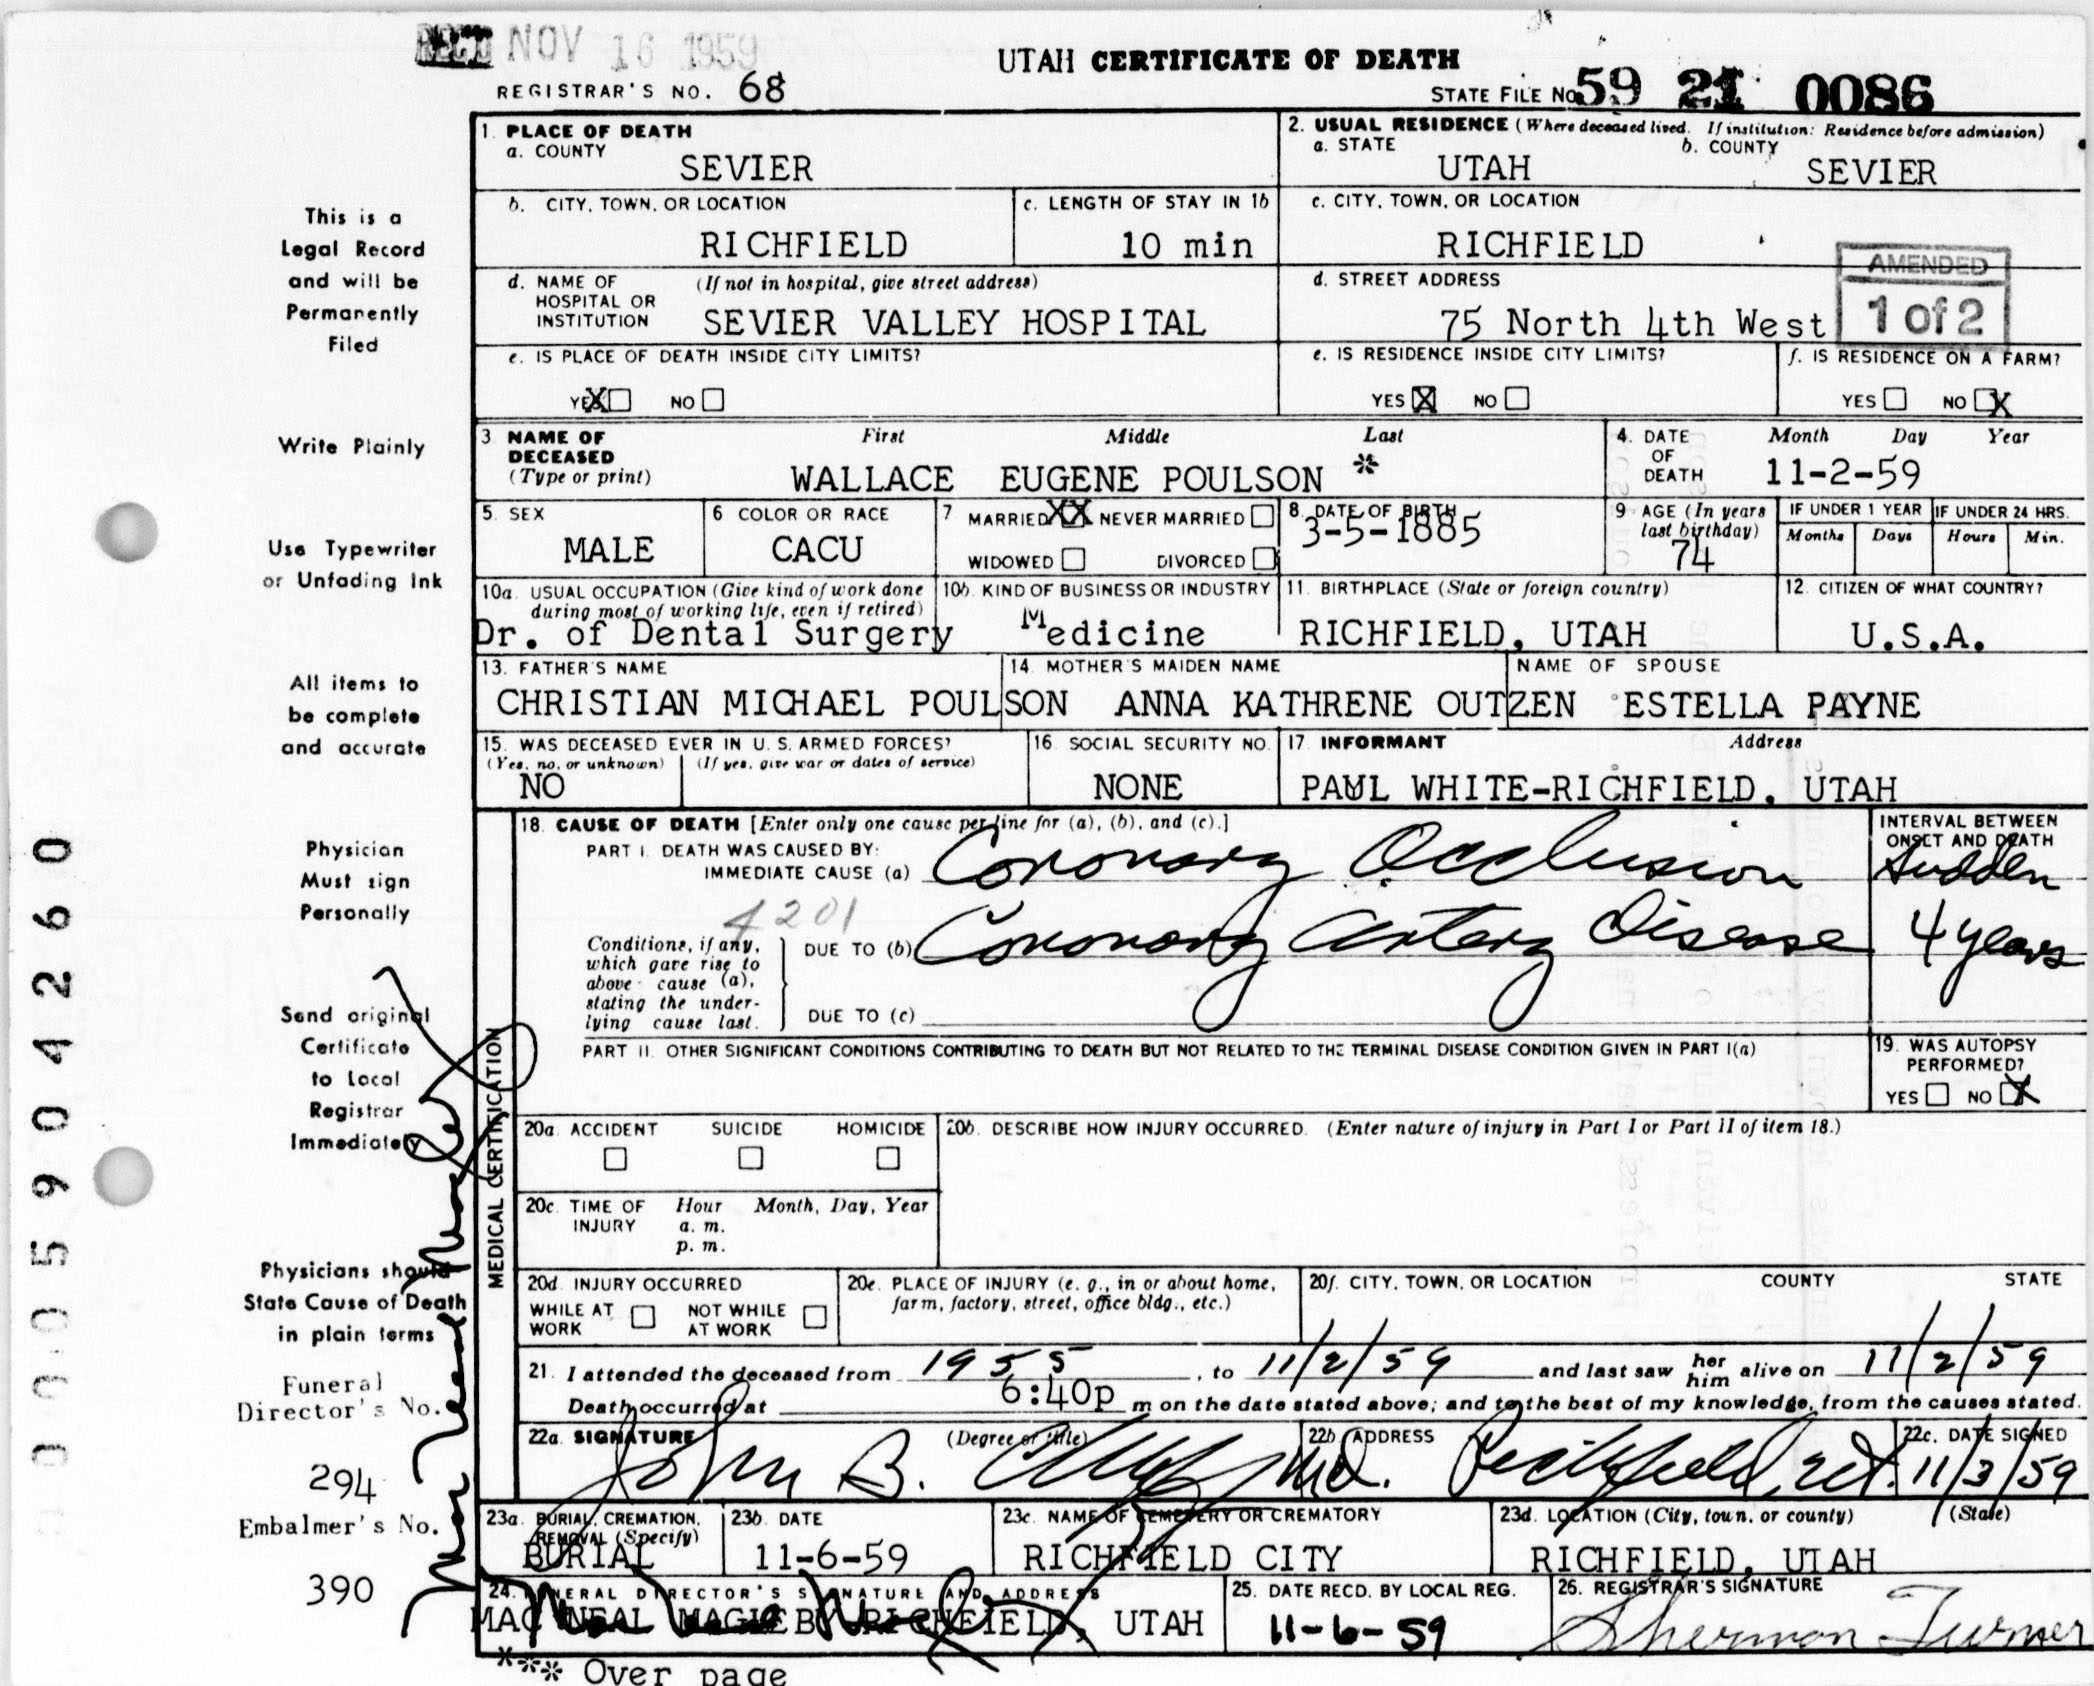 REC'D NOV 16 1959
UTAH CERTIFICATE OF DEATH
REGISTRAR'S NO. 68
STATE FILE No. 59 21 0086
1. PLACE OF DEATH
a. COUNTY
SEVIER
2. USUAL RESIDENCE (Where deceased lived. If institution: Residence before admission)
a. STATE b. COUNTY
UTAH SEVIER
b. CITY, TOWN, OR LOCATION
RICHFIELD
c. LENGTH OF STAY IN 1b
10 min
c. CITY, TOWN, OR LOCATION
RICHFIELD
AMENDED
1 of 2
d. NAME OF HOSPITAL OR INSTITUTION (If not in hospital, give street address)
SEVIER VALLEY HOSPITAL
d. STREET ADDRESS
75 North 4th West
e. IS PLACE OF DEATH INSIDE CITY LIMITS?
YES X NO
e. IS RESIDENCE INSIDE CITY LIMITS?
YES X NO
f. IS RESIDENCE ON A FARM?
YES NO X
3 NAME OF DECEASED (Type or print) First Middle Last
WALLACE EUGENE POULSON *
4. DATE OF DEATH Month Day Year
11-2-59
5. SEX
MALE
6 COLOR OR RACE
CACU
7 MARRIED XX NEVER MARRIED
WIDOWED DIVORCED
8. DATE OF BIRTH
3-5-1885
9 AGE (In years last birthday)
74
IF UNDER 1 YEAR IF UNDER 24 HRS.
Months Days Hours Min.
10a. USUAL OCCUPATION (Give kind of work done during most of working life, even if retired)
Dr. of Dental Surgery
10b. KIND OF BUSINESS OR INDUSTRY
Medicine
11. BIRTHPLACE (State or foreign country)
RICHFIELD, UTAH
12. CITIZEN OF WHAT COUNTRY?
U.S.A.
13. FATHER'S NAME
CHRISTIAN MICHAEL POULSON
14. MOTHER'S MAIDEN NAME
ANNA KATHRENE OUTZEN
NAME OF SPOUSE
ESTELLA PAYNE
15. WAS DECEASED EVER IN U. S. ARMED FORCES?
(Yes, no, or unknown) (If yes, give war or dates of service)
NO
16. SOCIAL SECURITY NO.
NONE
17. INFORMANT Address
PAUL WHITE-RICHFIELD, UTAH
MEDICAL CERTIFICATION
18. CAUSE OF DEATH [Enter only one cause per line for (a), (b), and (c).]
PART I. DEATH WAS CAUSED BY:
IMMEDIATE CAUSE (a) Coronary Occlusion
INTERVAL BETWEEN ONSET AND DEATH
Sudden
4201
Conditions, if any, which gave rise to above cause (a), stating the underlying cause last.
DUE TO (b) Coronary Artery Disease 4 years
DUE TO (c)
PART II. OTHER SIGNIFICANT CONDITIONS CONTRIBUTING TO DEATH BUT NOT RELATED TO THE TERMINAL DISEASE CONDITION GIVEN IN PART I(a)
19. WAS AUTOPSY PERFORMED?
YES NO X
20a. ACCIDENT SUICIDE HOMICIDE
20b. DESCRIBE HOW INJURY OCCURRED. (Enter nature of injury in Part I or Part II of item 18.)
20c. TIME OF INJURY Hour Month, Day, Year
a. m.
p. m.
20d. INJURY OCCURRED
WHILE AT WORK NOT WHILE AT WORK
20e. PLACE OF INJURY (e. g., in or about home, farm, factory, street, office bldg., etc.)
20f. CITY, TOWN, OR LOCATION COUNTY STATE
21. I attended the deceased from 1955, to 11/2/59 and last saw her him alive on 11/2/59
Death occurred at 6:40p m on the date stated above; and to the best of my knowledge, from the causes stated.
22a. SIGNATURE (Degree or title)
John B. M.D.
22b ADDRESS
Richfield, Ut.
22c. DATE SIGNED
11/3/59
23a. BURIAL, CREMATION, REMOVAL (Specify)
BURIAL
23b. DATE
11-6-59
23c. NAME OF CEMETERY OR CREMATORY
RICHFIELD CITY
23d. LOCATION (City, town, or county) (State)
RICHFIELD, UTAH
24. FUNERAL DIRECTOR'S SIGNATURE AND ADDRESS
MAC NEAL MAGLEBY RICHFIELD, UTAH
25. DATE RECD. BY LOCAL REG.
11-6-59
26. REGISTRAR'S SIGNATURE
Sherman Turner
*** Over page
This is a
Legal Record
and will be
Permanently
Filed
Write Plainly
Use Typewriter
or Unfading Ink
All items to
be complete
and accurate
Physician
Must sign
Personally
Send original
Certificate
to Local
Registrar
Immediately
Physicians should
State Cause of Death
in plain terms
Funeral
Director's No.
294
Embalmer's No.
390
0005904260